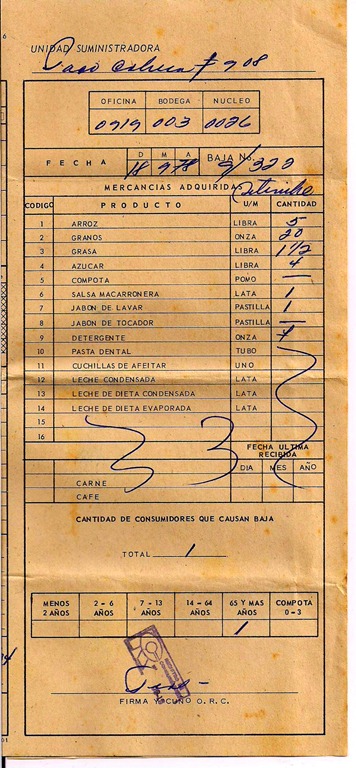 6
UNIDAD SUMINISTRADORA
# 908
OFICINA BODEGA NUCLEO
0919 003 0026
FECHA D M A BAJA No.
18 9 78 9/322
MERCANCIAS ADQUIRIDAS
CODIGO PRODUCTO U/M CANTIDAD
1 ARROZ LIBRA 5
2 GRANOS ONZA 20
3 GRASA LIBRA 1 1/2
4 AZUCAR LIBRA 4
5 COMPOTA POMO —
6 SALSA MACARRONERA LATA 1
7 JABON DE LAVAR PASTILLA 1
8 JABON DE TOCADOR PASTILLA —
9 DETERGENTE ONZA
10 PASTA DENTAL TUBO
11 CUCHILLAS DE AFEITAR UNO
12 LECHE CONDENSADA LATA
13 LECHE DE DIETA CONDENSADA LATA
14 LECHE DE DIETA EVAPORADA LATA
15
16
FECHA ULTIMA RECIBIDA
DIA MES AÑO
CARNE
CAFE
CANTIDAD DE CONSUMIDORES QUE CAUSAN BAJA
TOTAL 1
MENOS 2 AÑOS 2-6 AÑOS 7-13 AÑOS 14-64 AÑOS 65 Y MAS AÑOS COMPOTA 0-3
1
FIRMA Y CUÑO O.R.C.